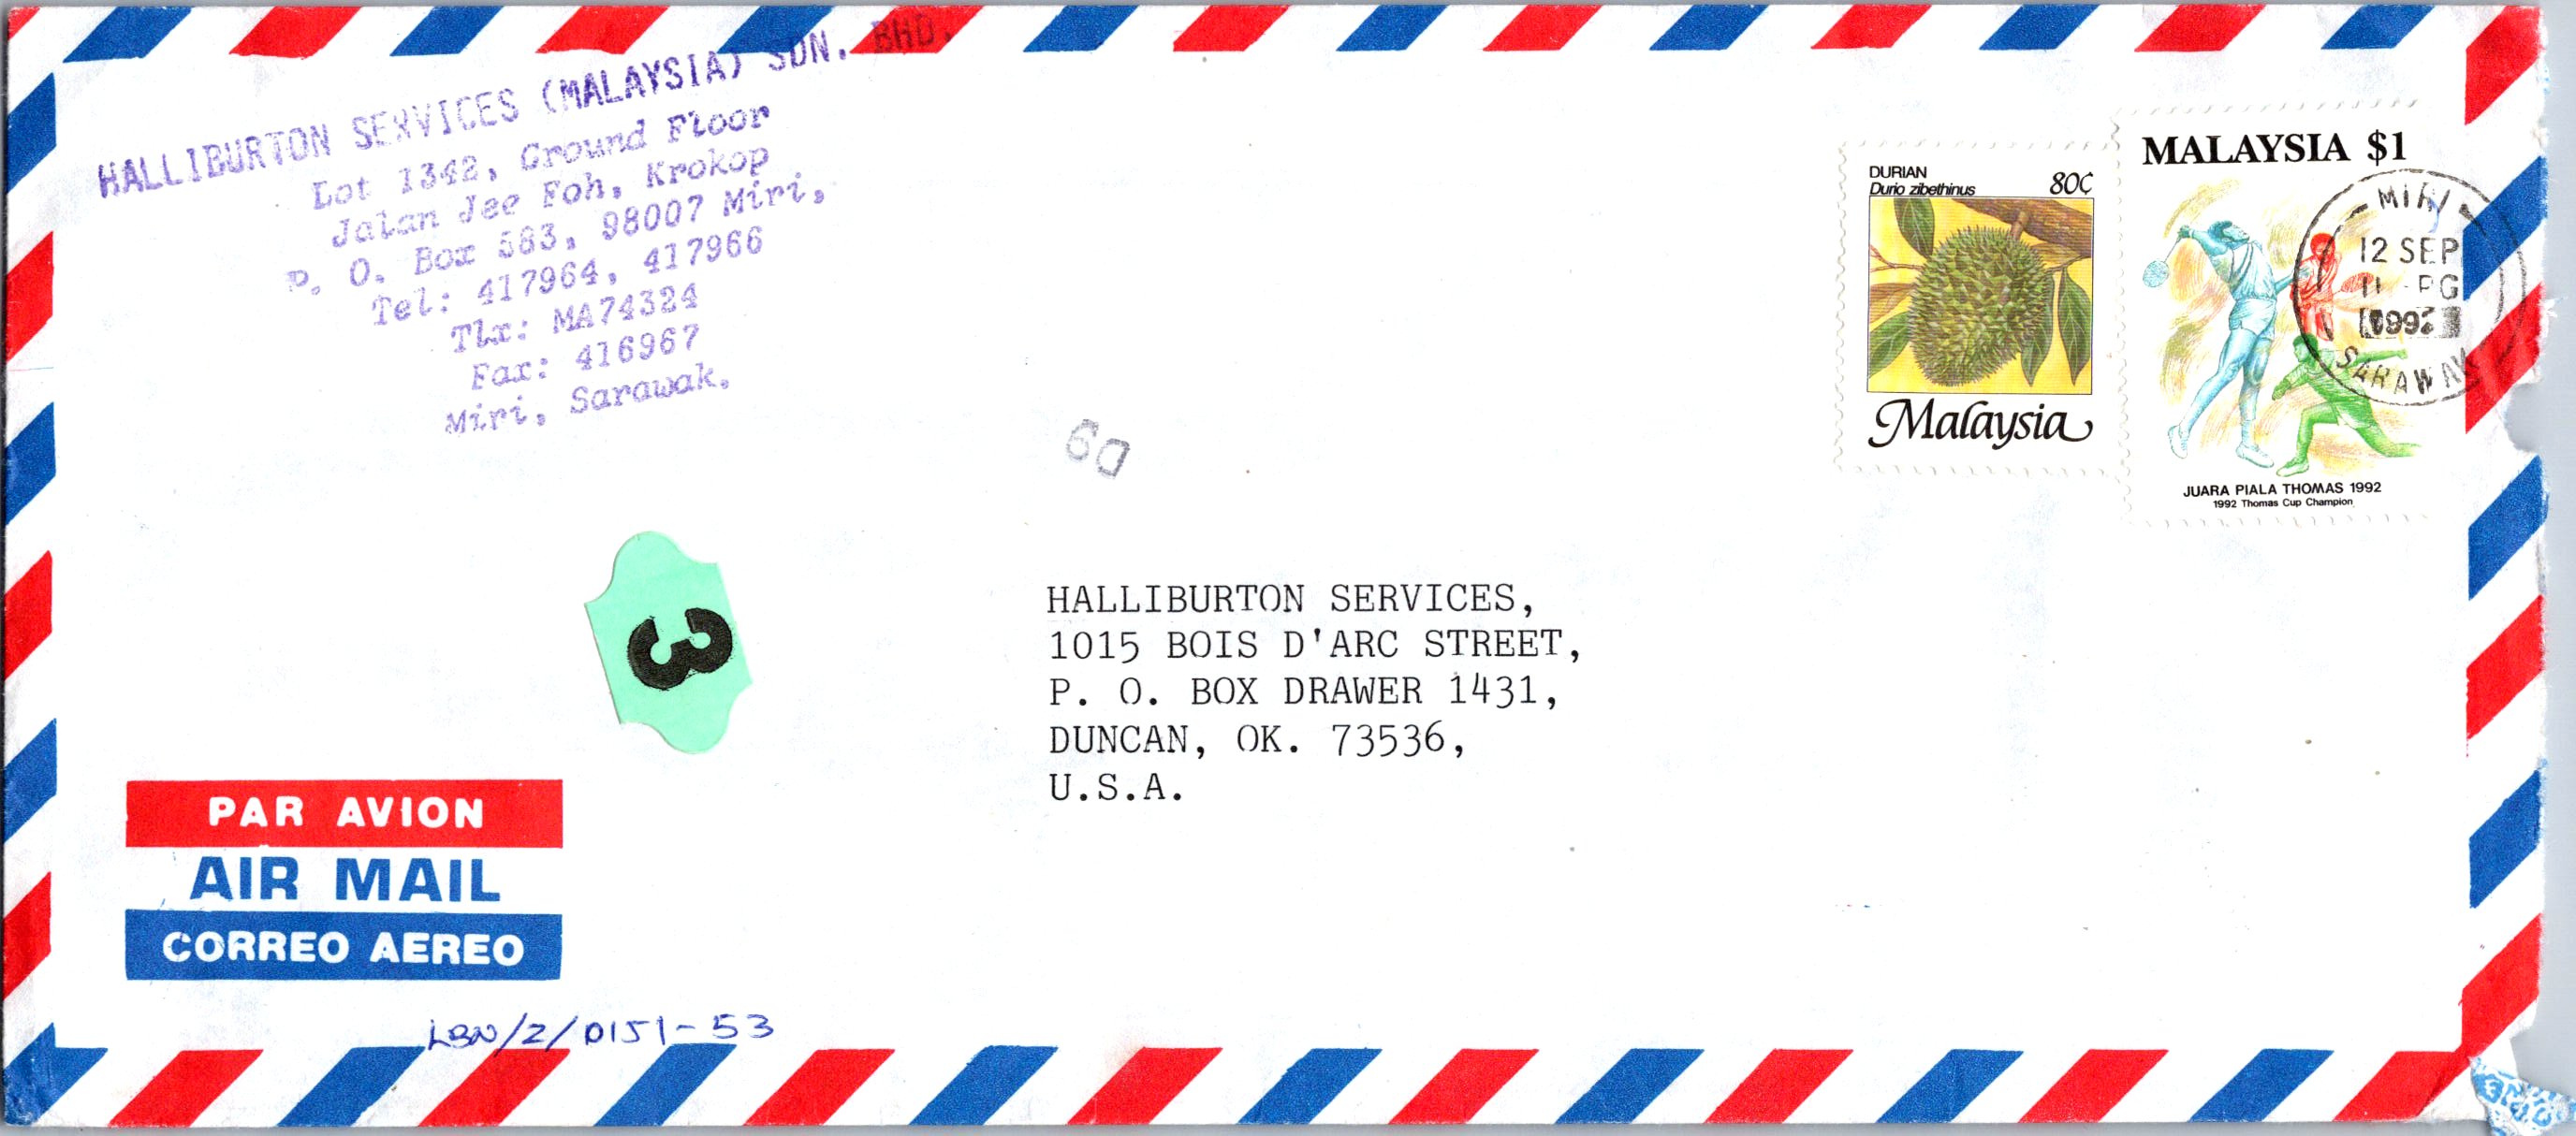 HALLIBURTON SERVICES (MALAYSIA) SDN. BHD.
Lot 1342, Ground Floor
Jalan Jee Foh, Krokop
P. O. Box 583, 98007 Miri,
Tel: 417964, 417966
Tlx: MA74324
Fax: 416967
Miri, Sarawak.
DURIAN
Durio zibethinus
80¢
Malaysia
MALAYSIA $1
JUARA PIALA THOMAS 1992
1992 Thomas Cup Champion
MIRI
12 SEP
11 - PG
1992
SARAWAK
60
3
HALLIBURTON SERVICES,
1015 BOIS D'ARC STREET,
P. O. BOX DRAWER 1431,
DUNCAN, OK. 73536,
U.S.A.
PAR AVION
AIR MAIL
CORREO AEREO
LBN/2/0151-53